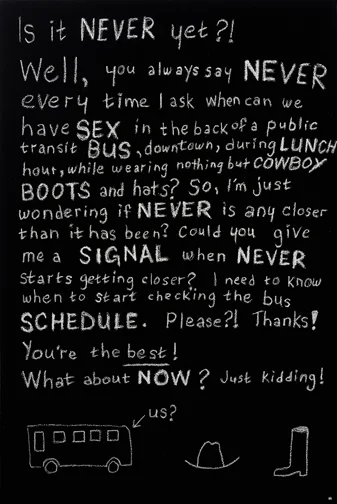 Is it NEVER yet?!
Well, you always say NEVER
every time I ask when can we
have SEX in the back of a public
transit BUS, downtown, during LUNCH
hour, while wearing nothing but COWBOY
BOOTS and hats? So, I'm just
wondering if NEVER is any closer
than it has been? Could you give
me a SIGNAL when NEVER
starts getting closer? I need to know
when to start checking the bus
SCHEDULE. Please?! Thanks!
You're the best!
What about NOW? Just kidding!
us?